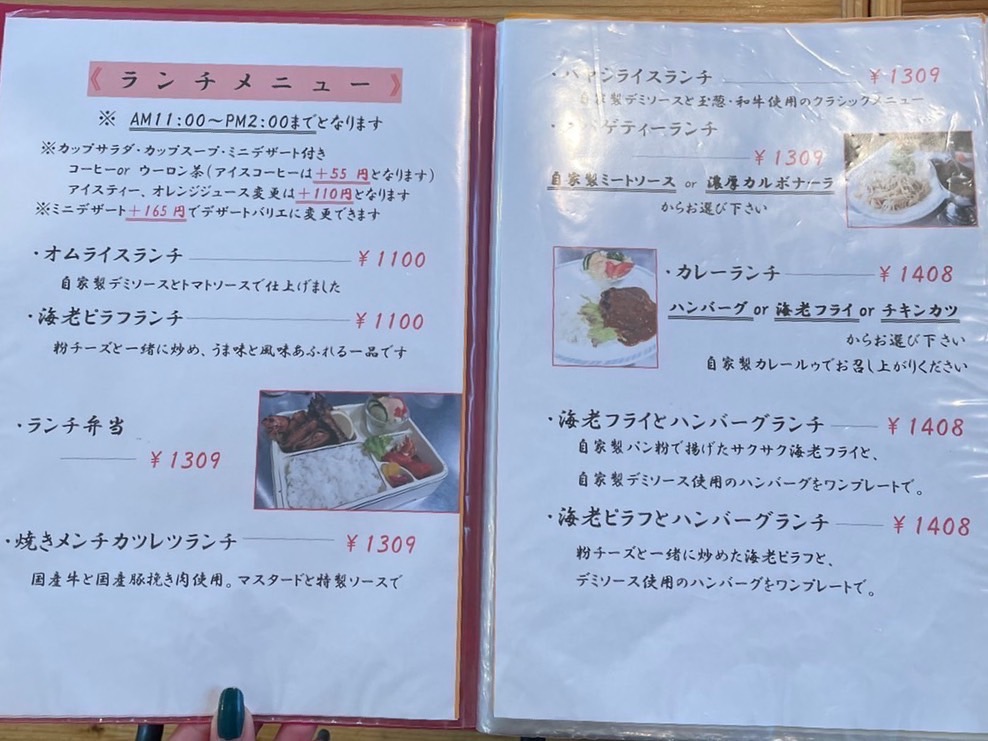 《 ランチメニュー 》
※ AM11:00～PM2:00までとなります
※カップサラダ・カップスープ・ミニデザート付き
コーヒーor ウーロン茶(アイスコーヒーは＋55 円となります)
アイスティー、オレンジジュース変更は＋110円となります
※ミニデザート＋165円でデザートバリエに変更できます
・オムライスランチ ¥1100
自家製デミソースとトマトソースで仕上げました
・海老ピラフランチ ¥1100
粉チーズと一緒に炒め、うま味と風味あふれる一品です
・ランチ弁当
¥1309
・焼きメンチカツレツランチ ¥1309
国産牛と国産豚挽き肉使用。マスタードと特製ソースで
・ハヤシライスランチ ¥1309
自家製デミソースと玉葱・和牛使用のクラシックメニュー
・スパゲティーランチ
¥1309
自家製ミートソース or 濃厚カルボナーラ
からお選び下さい
・カレーランチ ¥1408
ハンバーグ or 海老フライ or チキンカツ
からお選び下さい
自家製カレールゥでお召し上がりください
・海老フライとハンバーグランチ ¥1408
自家製パン粉で揚げたサクサク海老フライと、
自家製デミソース使用のハンバーグをワンプレートで。
・海老ピラフとハンバーグランチ ¥1408
粉チーズと一緒に炒めた海老ピラフと、
デミソース使用のハンバーグをワンプレートで。